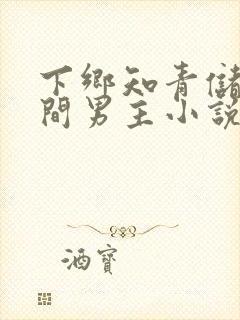 下鄉知青儲
間男主小說
酒寶